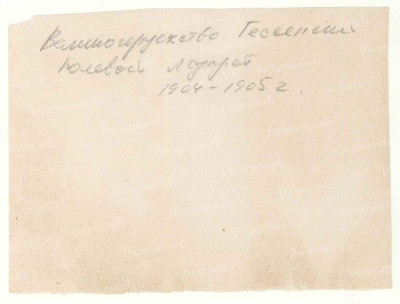 Великогерцогство Гессенский
полевой лазарет
1904-1905 г.